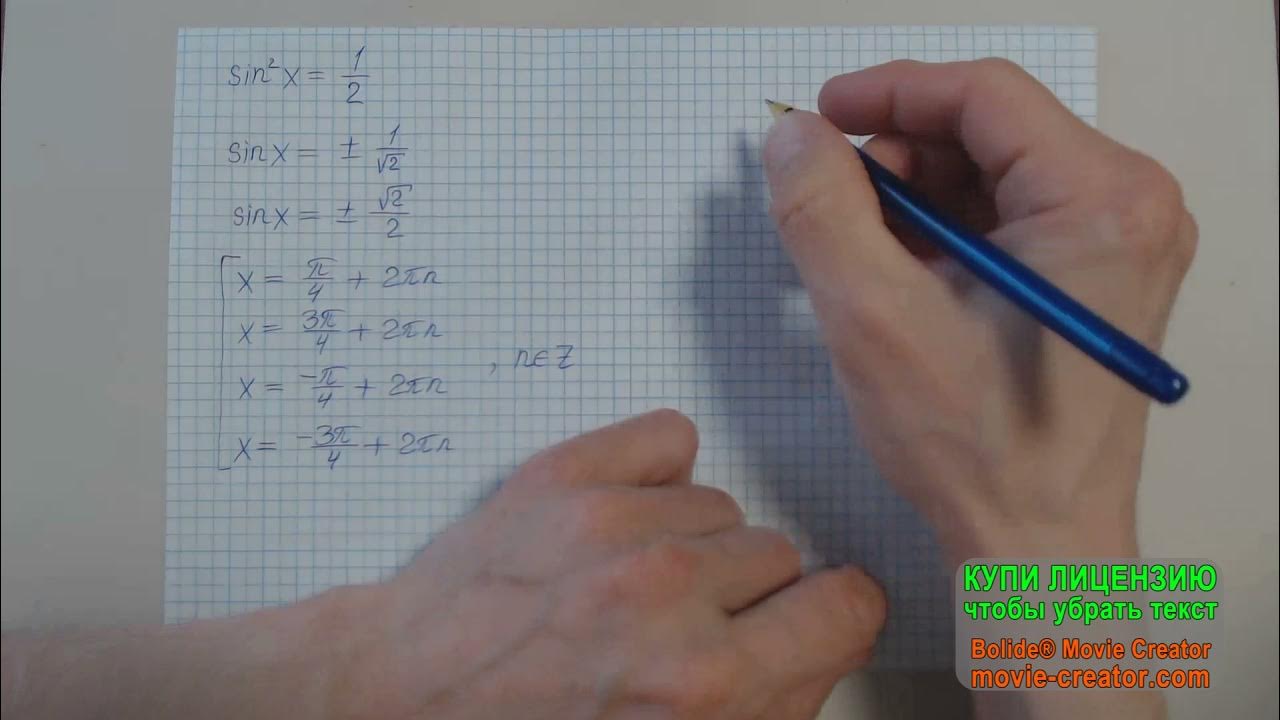 sin²x = 1/2
sin x = ± 1/√2
sin x = ± √2/2
x = π/4 + 2πn
x = 3π/4 + 2πn
, n∈Z
x = -π/4 + 2πn
x = -3π/4 + 2πn
КУПИ ЛИЦЕНЗИЮ
чтобы убрать текст
Bolide® Movie Creator
movie-creator.com